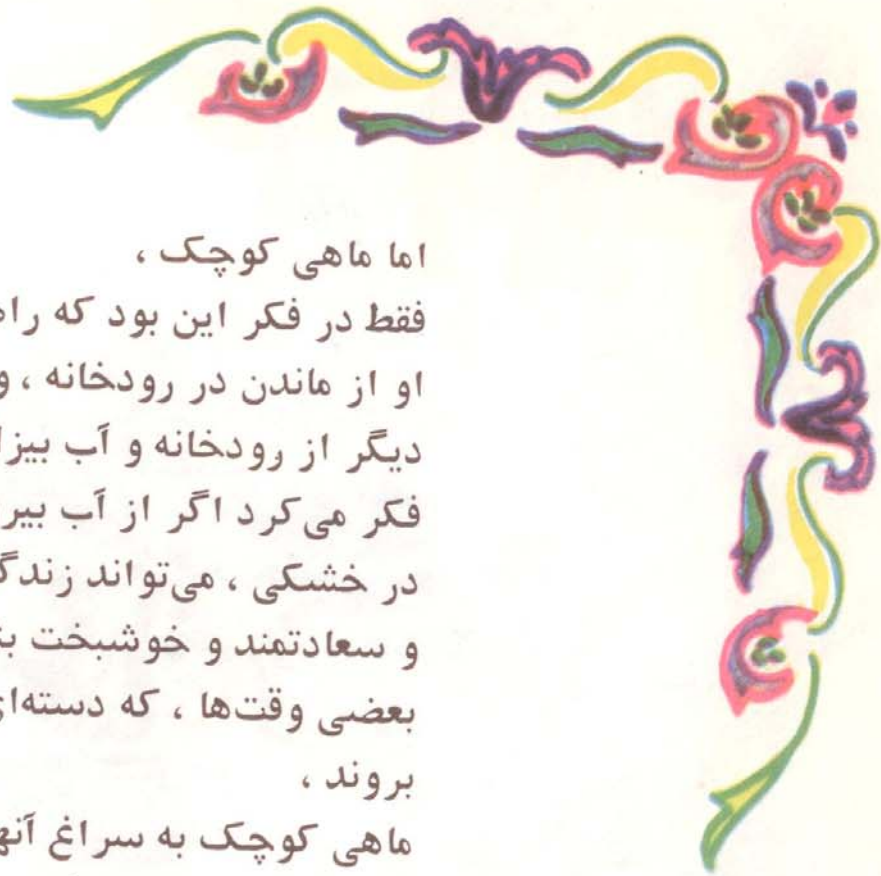 اما ماهی کوچک ،
فقط در فکر این بود که
او از ماندن در رودخانه ،
دیگر از رودخانه و آب
فکر می‌کرد اگر از آب
در خشکی ، می‌تواند
و سعادتمند و خوشبخت
بعضی وقت‌ها ، که
بروند ،
ماهی کوچک به سراغ